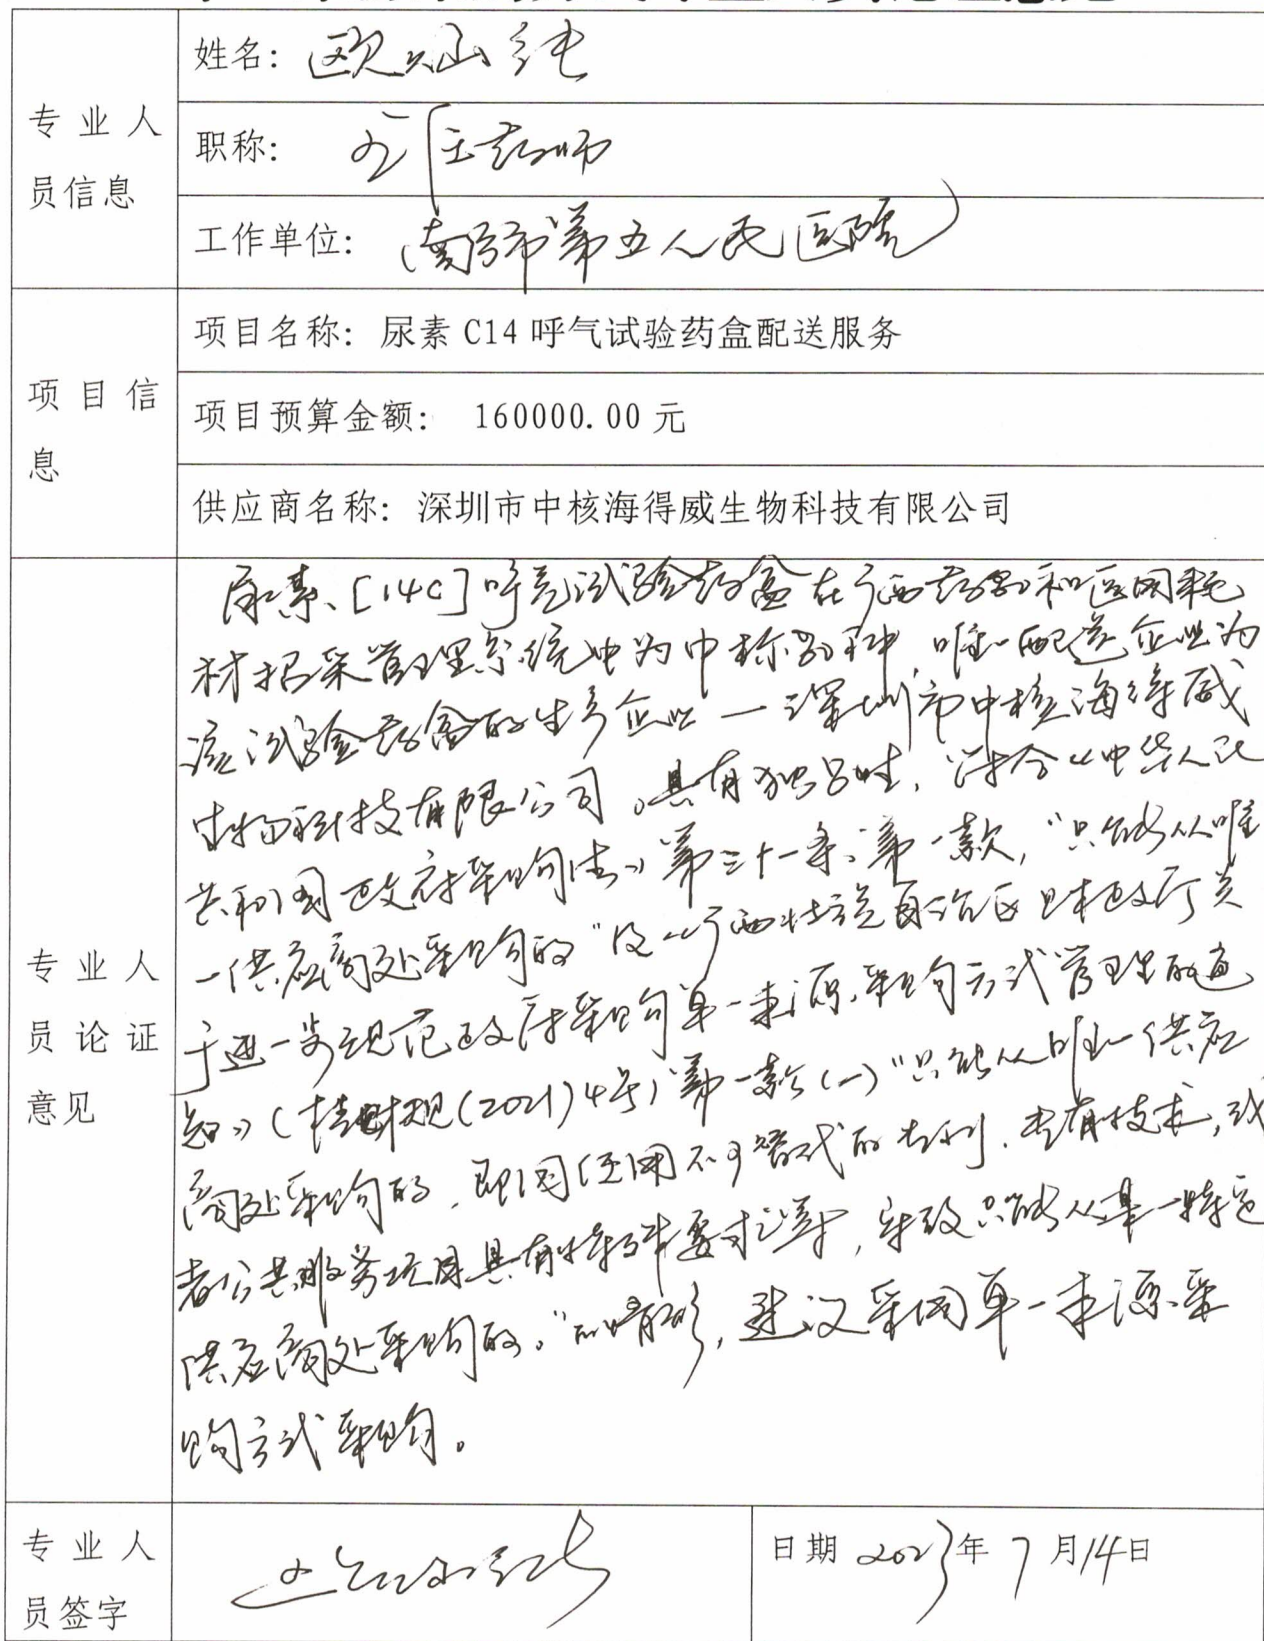 专业人员信息
姓名：欧灿纯
职称：主药师
工作单位：南宁市第五人民医院
项目信息
项目名称：尿素 C14 呼气试验药盒配送服务
项目预算金额： 160000.00 元
供应商名称：深圳市中核海得威生物科技有限公司
专业人员论证意见
尿素[14C]呼气试验药盒在广西药品和医用耗
材招采管理系统中为中标品种，唯一配送企业为
该试验药盒的生产企业—深圳市中核海得威
生物科技有限公司。具有独占性，符合《中华人民
共和国政府采购法》第三十一条、第一款，“只能从唯
一供应商处采购的”及《广西壮族自治区财政厅关
于进一步规范政府采购单一来源采购方式管理的通
知》（桂财规(2021)4号）第一款(一)“只能从唯一供应
商处采购的，即因使用不可替代的专利、专有技术，或
者公共服务项目具有特殊要求等，导致只能从某一特定
供应商处采购的。”的情形，建议采用单一来源采
购方式采购。
专业人员签字
日期 2023年 7月14日